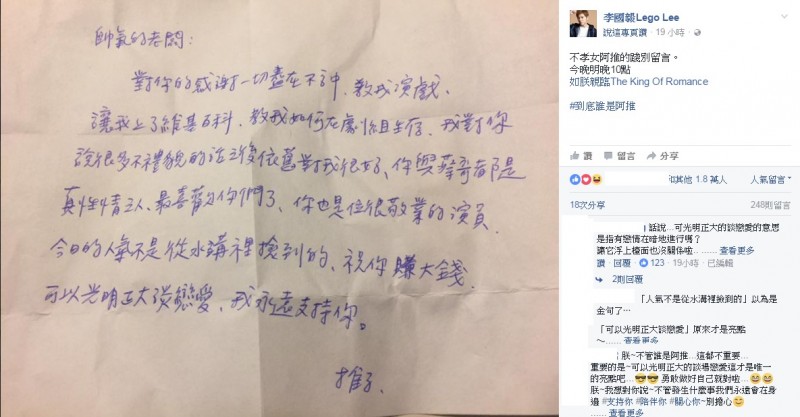 帥氣的老闆：
對你的感謝一切盡在不中、教我演戲、
讓我上了維基百科、教我如何在劇組生存、我對你
說很多不禮貌的話之後依舊對我很好、你與蔡哥都是
真性情之人、最喜歡你們了、你也是位很敬業的演員、
今日的人氣不是從水溝裡撿到的、祝你賺大錢、
可以光明正大談戀愛、我永遠支持你。
李國毅Lego Lee
說這專頁讚 · 19 小時 ·
不孝女阿推的餞別留言。
今晚明晚10點
如朕親臨The King Of Romance
#到底誰是阿推
讚 留言 分享
和其他 1.8 萬人 人氣留言
18次分享 248則留言
話說...可光明正大的談戀愛的意思
是指有戀情在暗地進行嗎？
讓它浮上檯面也沒關係啦.. ...... 查看更多
讚 · 回覆 · 123 · 19小時 · 已編輯
2則回覆
「人氣不是從水溝裡撿到的」以為是
金句了⋯
「可以光明正大談戀愛」原來才是亮點
～...... 查看更多
朕~不管誰是阿推...這都不重要...
重要的是~可以光明正大的談場戀愛這才是唯一
的亮點吧...😎😎 勇敢做好自己就對啦...😄😄
朕~我想對你說~不管發生什麼事我們永遠會在身
邊 #支持你 #陪伴你 #關心你~別擔心😊